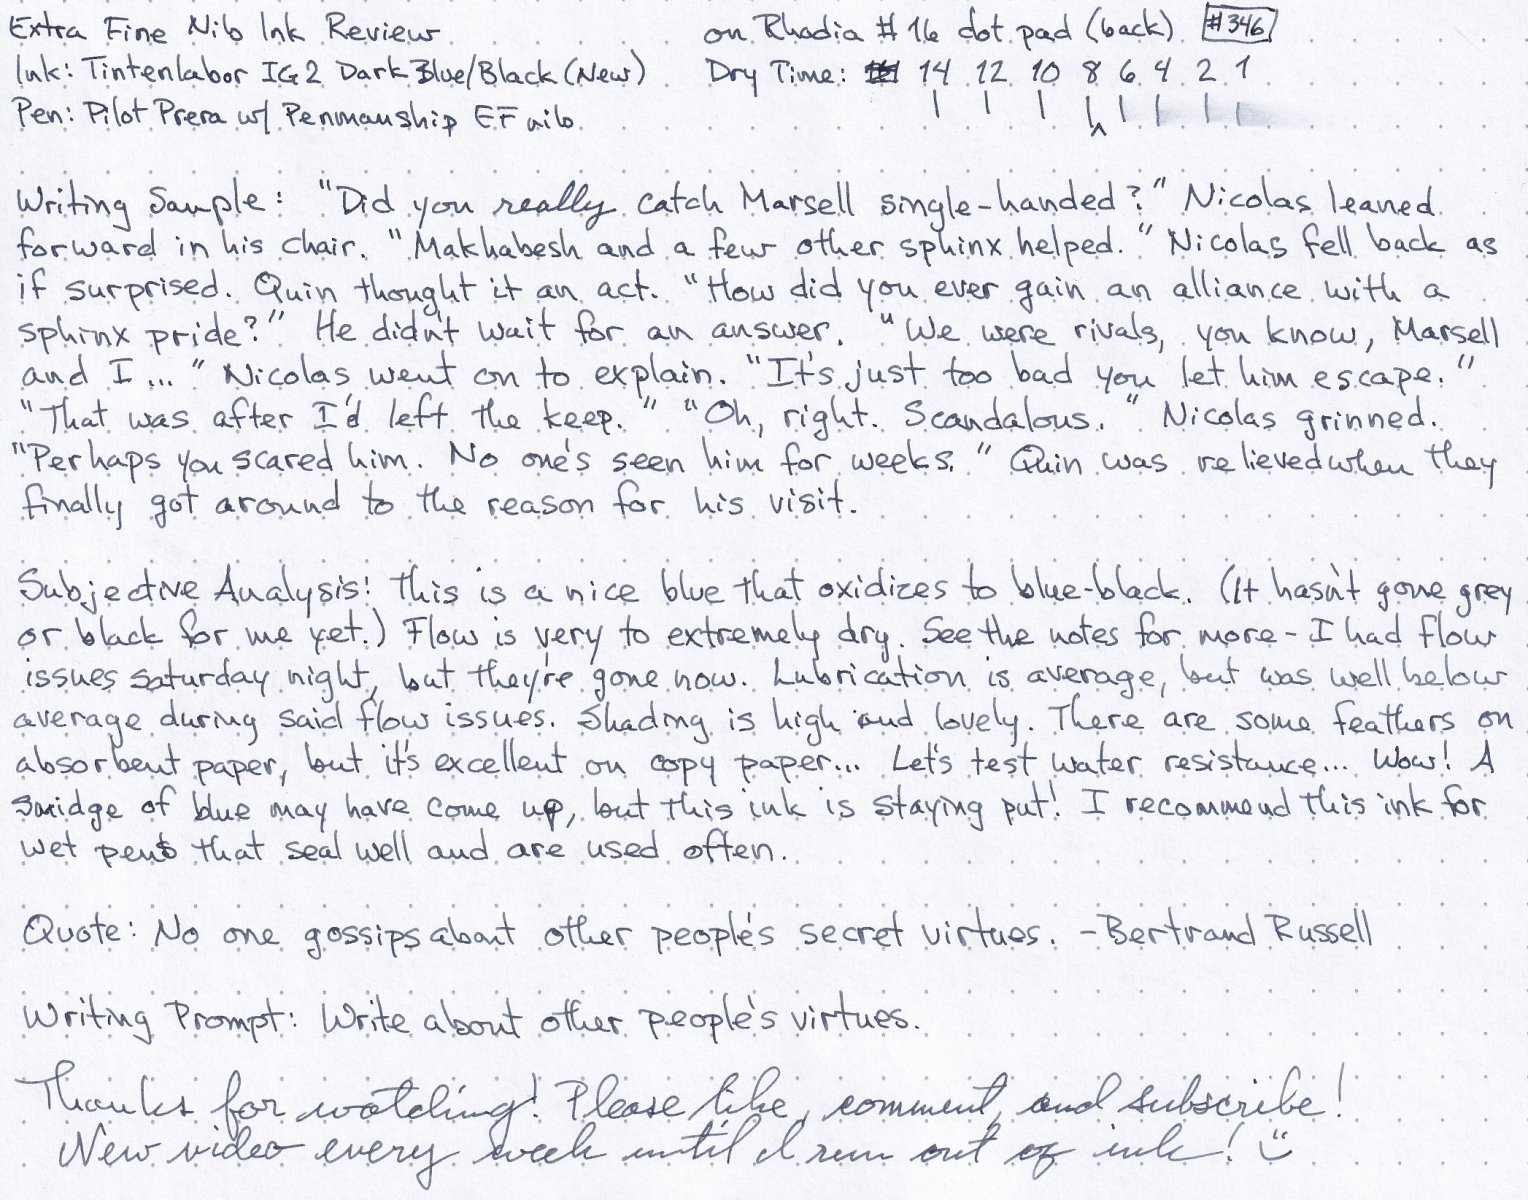 Extra Fine Nib Ink Review on Rhodia #16 dot pad (back) #346
Ink: Tintenlabor IG2 Dark Blue/Black (New) Dry Time: 14 12 10 8 6 4 2 1
Pen: Pilot Prera w/ Penmanship EF nib
Writing Sample: "Did you really catch Marsell single-handed?" Nicolas leaned
forward in his chair. "Makhabesh and a few other sphinx helped." Nicolas fell back as
if surprised. Quin thought it an act. "How did you ever gain an alliance with a
sphinx pride?" He didn't wait for an answer. "We were rivals, you know, Marsell
and I..." Nicolas went on to explain. "It's just too bad you let him escape."
"That was after I'd left the keep." "Oh, right. Scandalous." Nicolas grinned.
"Perhaps you scared him. No one's seen him for weeks." Quin was relieved when they
finally got around to the reason for his visit.
Subjective Analysis: This is a nice blue that oxidizes to blue-black. (It hasn't gone grey
or black for me yet.) Flow is very to extremely dry. See the notes for more - I had flow
issues Saturday night, but they're gone now. Lubrication is average, but was well below
average during said flow issues. Shading is high and lovely. There are some feathers on
absorbent paper, but it's excellent on copy paper... Let's test water resistance... Wow! A
smidge of blue may have come up, but this ink is staying put! I recommend this ink for
wet pens that seal well and are used often.
Quote: No one gossips about other people's secret virtues. -Bertrand Russell
Writing Prompt: Write about other people's virtues.
Thanks for watching! Please like, comment, and subscribe!
New video every week until I run out of ink!